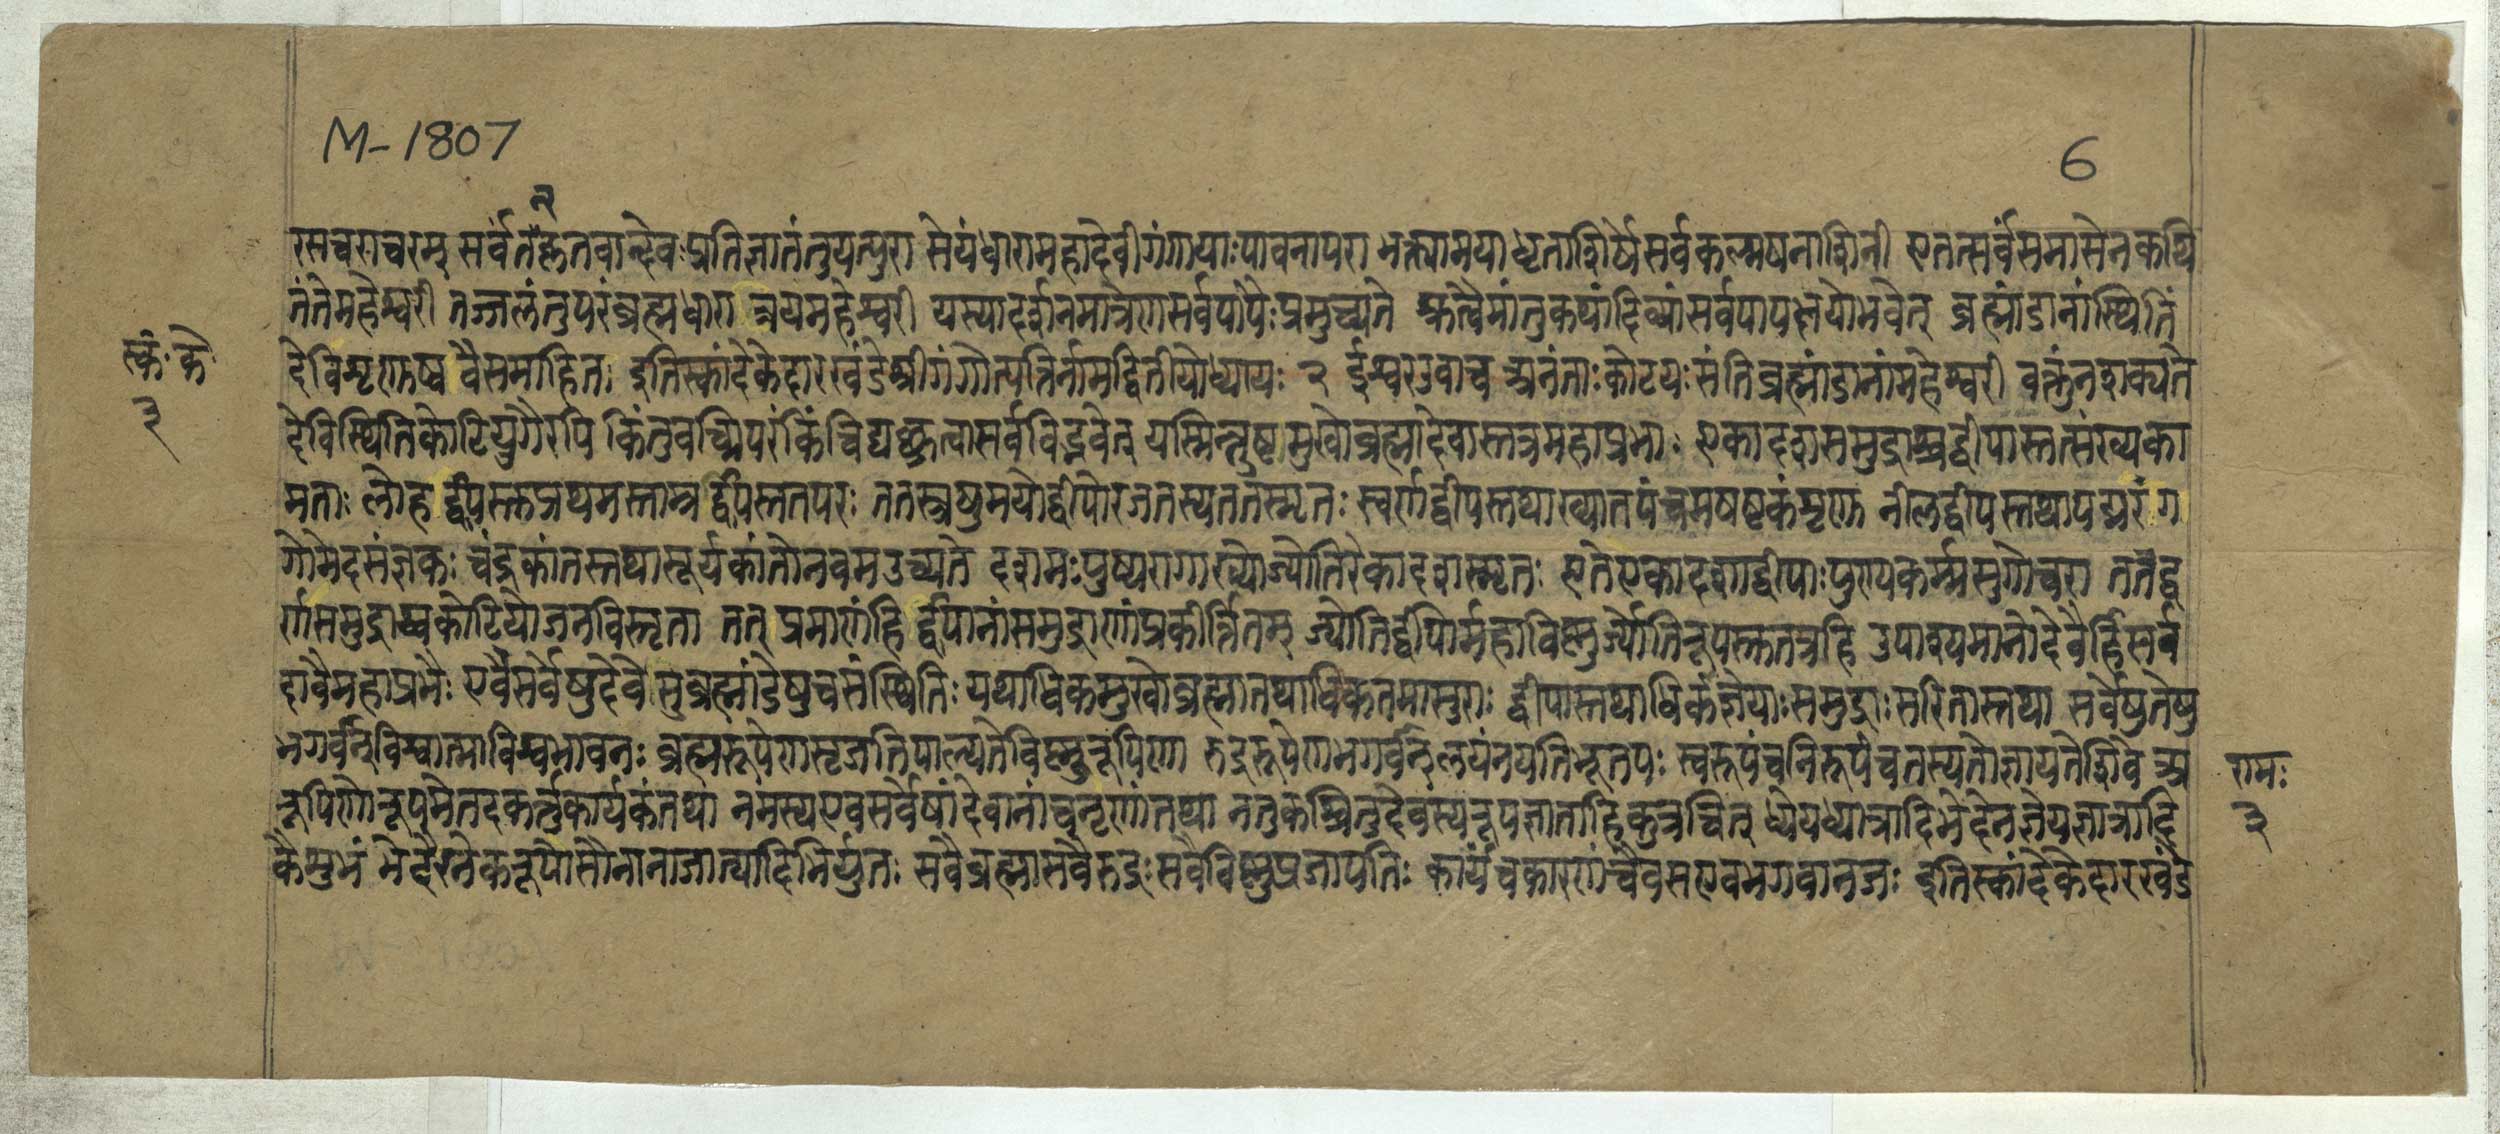 M-1807
6
रसचराचरम् सर्वंतत्कृतवान्देवः प्रतिज्ञातंतुयत्पुरा सेयंधारामहादेवीगंगायाःपावनापरा भक्त्यामयाधृताशिर्षेसर्वकल्मषनाशिनी एतत्सर्वंसमासेनकथि
तंतेमहेश्वरी तज्जलंतुपरंब्रह्मधारात्रयमहेश्वरी यस्यादर्शनमात्रेणसर्वपापैःप्रमुच्यते श्रुत्वैमांतुकथांदिव्यांसर्वपापक्षयोभवेत् ब्रह्मांडानांस्थितिं
देविशृणुष्व वैसमाहितः इतिस्कांदेकेदारखंडेश्रीगंगोत्पत्तिर्नामद्वितीयोध्यायः २ ईश्वरउवाच अनंताःकोटयःसंतिब्रह्मांडानांमहेश्वरी वक्तुंनशक्यते
स्कं॰ के॰
३
देविस्थितिकोटियुगैरपि किंतुवच्मिपरंकिंचिद्यच्छ्रुत्वासर्वविद्भवेत् यस्मिन्नष्टमुखोब्रह्मादेवास्तत्रमहाप्रभाः एकादशसमुद्राश्चद्वीपास्तत्संख्यका
मताः लोहद्वीपस्तुप्रथमस्ताम्रद्वीपस्ततपरः ततस्त्रपुमयोद्वीपोरजतस्यततस्मृतः स्वर्णद्वीपस्तथाख्यातपंचमषष्टकंशृणु नीलद्वीपस्तथापद्मरंग
गोमेदसंज्ञकः चंद्रकांतस्तथासूर्यकांतोनवमउच्यते दशमःपुष्परागाख्योज्योतिरेकादशस्मृतः एतेएकादशद्वीपाःपुण्यकर्म्मसुगोचरा तत्तद्व
र्णसमुद्राश्चकोटियोजनविस्तृता तत् प्रमाणंहिद्वीपानांसमुद्राणांप्रकीर्त्तितम् ज्योतिर्द्वीपोर्महाविष्णुर्ज्योतिरूपस्तुतत्रहि उपाश्यमानोदेवैर्हिसर्व
दावैमहाप्रभैः एवंसर्वेषुदेवेसुब्रह्मांडेषुचसंस्थितिः यथाधिकमुखोब्रह्मातथाधिकतमासुराः द्वीपास्तथाधिकंज्ञेयाःसमुद्राःसरितास्तथा सर्वेषुतेषु
भगवन्विश्वात्माविश्वभावनः ब्रह्मरूपेणसृजतिपाल्यतेविष्णुरूपिणा रुद्ररूपेणभगवन्लयंनयतिभूतपः स्वरूपंचविरूपंचतस्यतोज्ञायतेशिवे अ
रूपिणोरूपमेतदकर्तुकार्यकंतथा नमस्यएवसर्वेषांदेवानांचनृणांतथा नतुकश्चित्तुदेवस्यरूपज्ञाताहिकुत्रचित् ध्येयध्यात्रादिभेदेनज्ञेयज्ञात्रादि
रामः
३
कैसुभं भेदैरनेकरूपोसौनानाजात्यादिभिर्युतः सवैब्रह्मासवैरुद्रःसवैविष्णुप्रजापतिः कार्यंचकारणंचैवसएवभगवानजः इतिस्कांदेकेदारखंडे